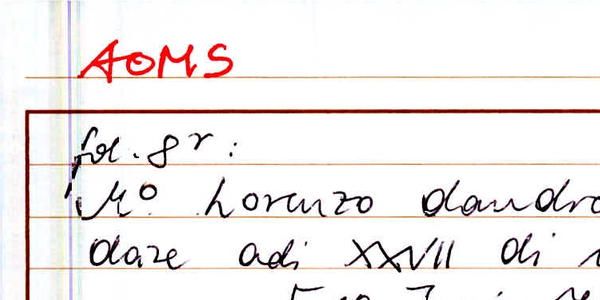 AOMS
fol. 8r:
Mo Lorenzo dandro
daze adi XXVII di